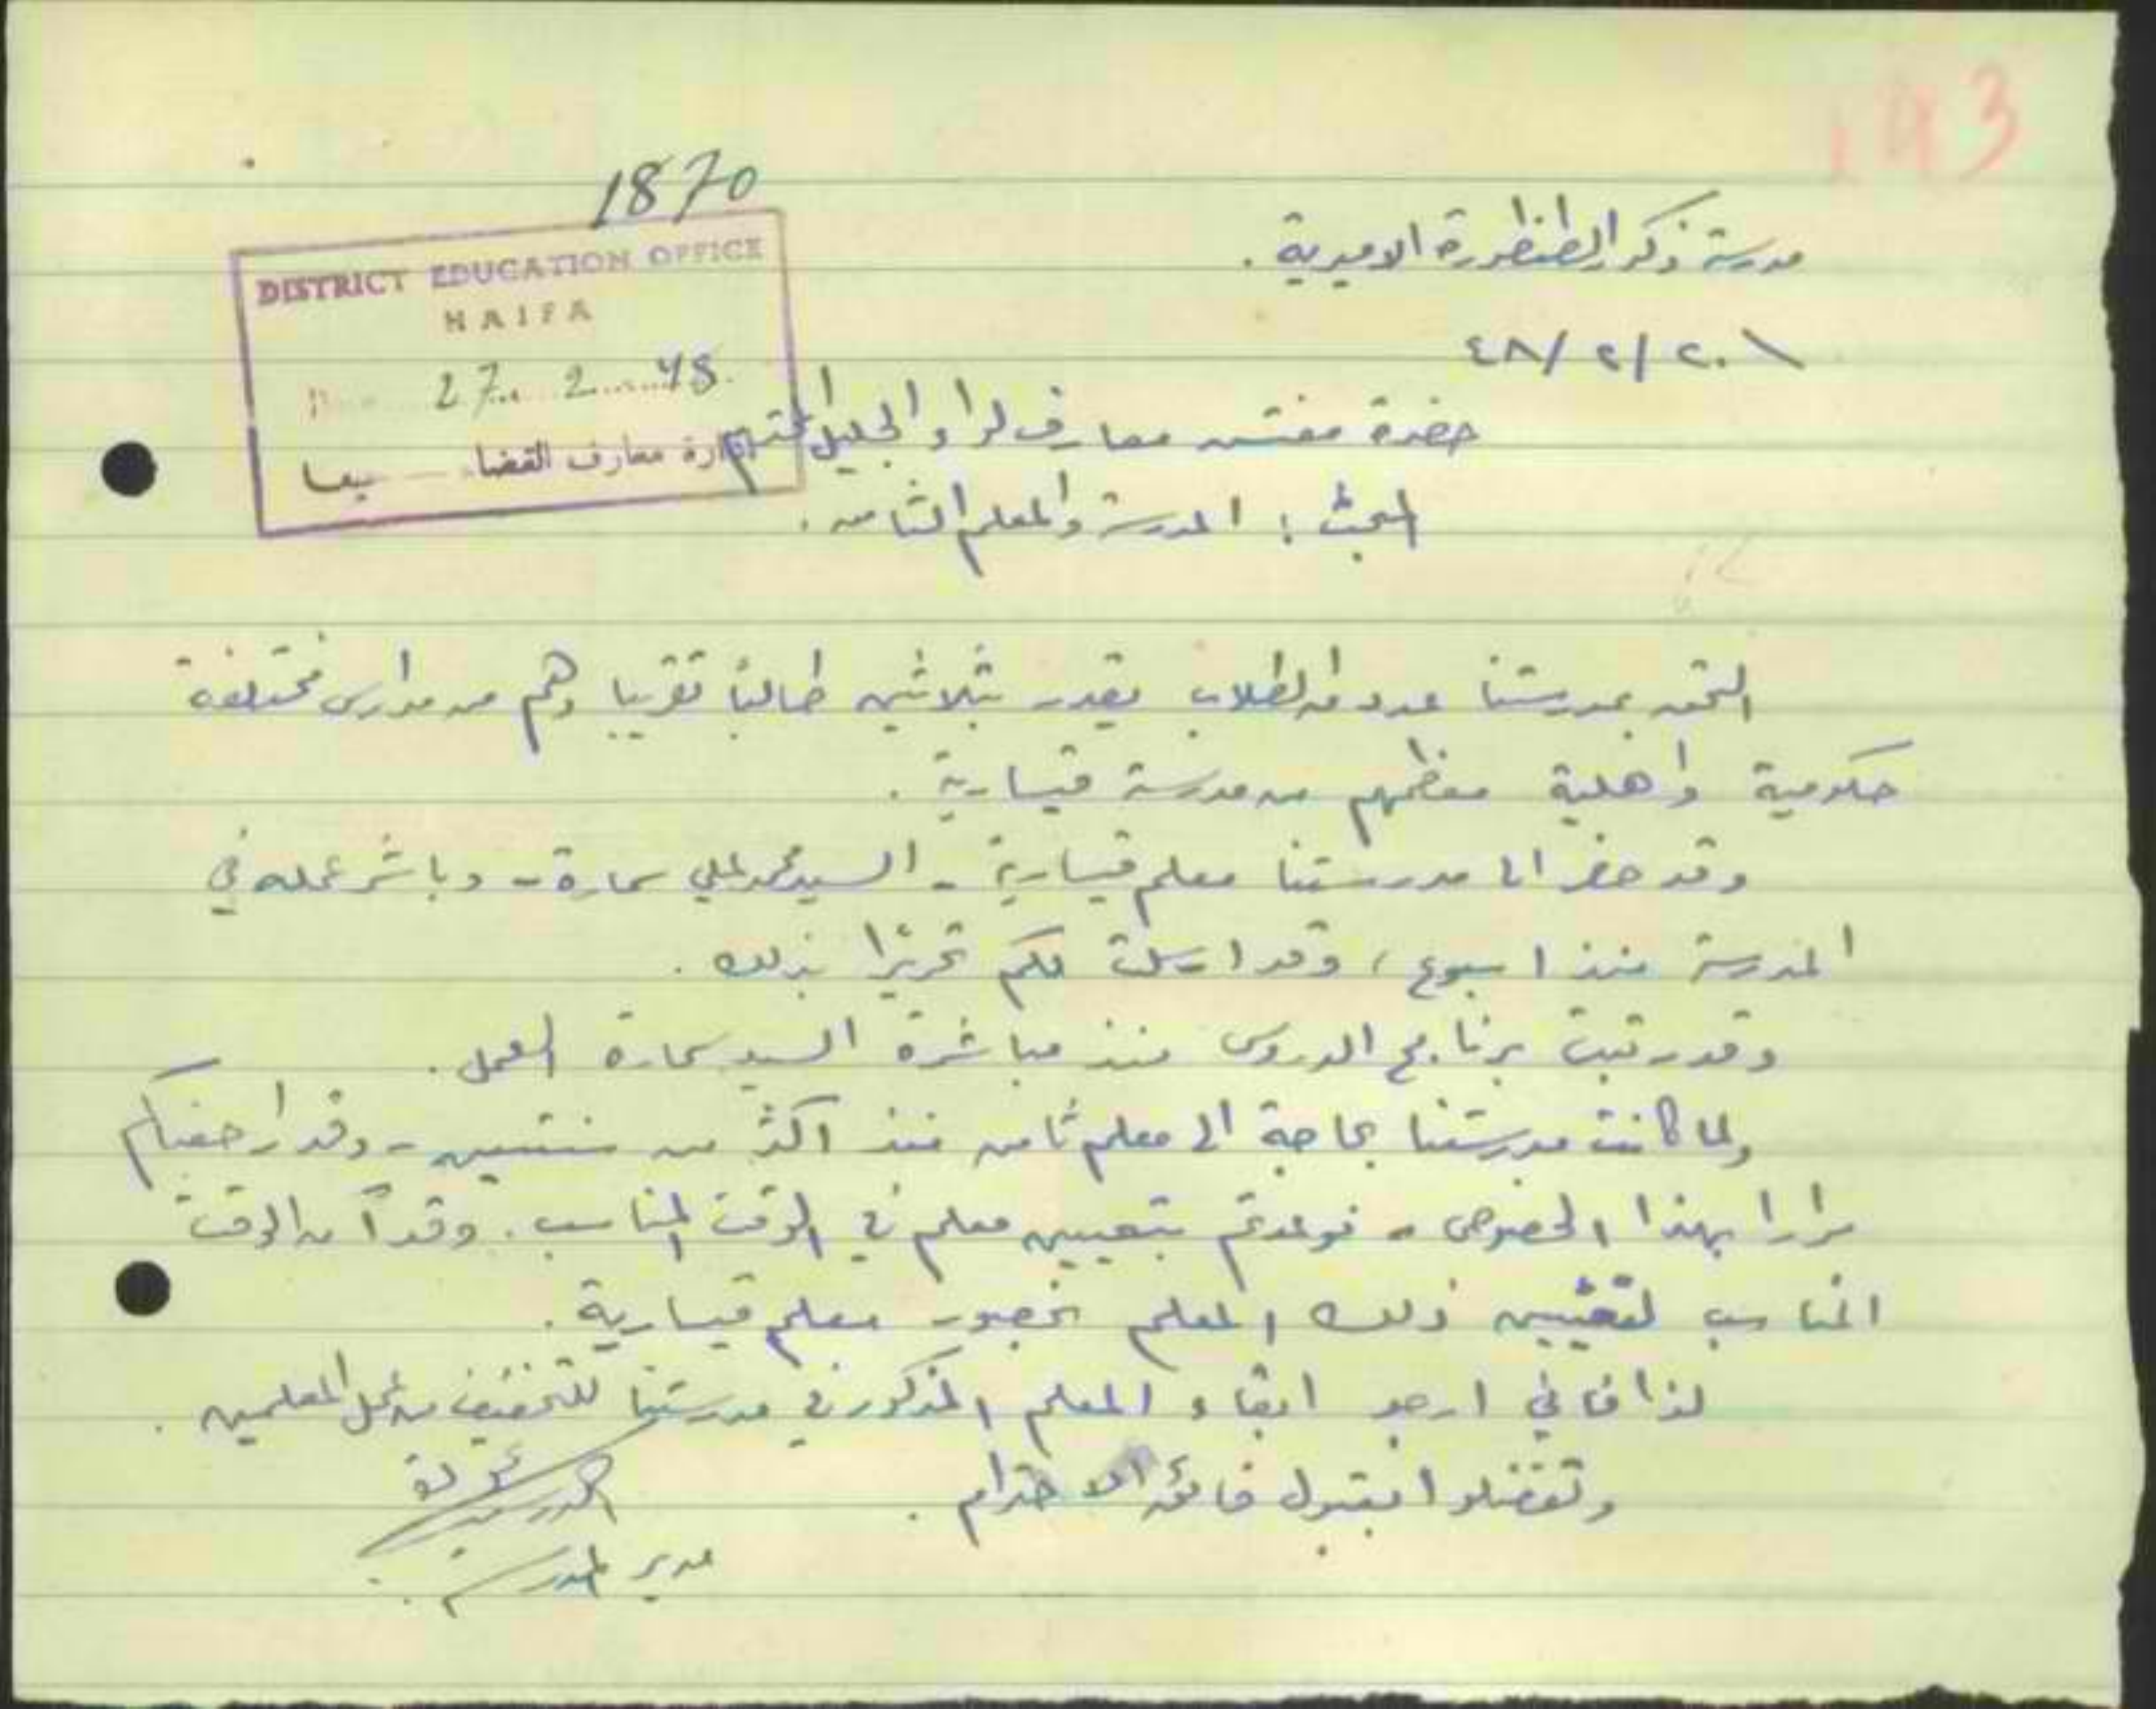 193
1870
DISTRICT EDUCATION OFFICE
HAIFA
27 2 48
ادارة معارف القضا يفا
مدرسة ذكور الطنطورة الاميرية .
٤٨/٢/٢٠
حضرة مفتش معارف لواء الجليل المحترم
البحث : المدرسة والمعلم الثامن .
التحق بمدرستنا عدد من الطلاب يقدر بثلاثين طالبًا تقريبا وهم من مدارس مختلفة
حكومية واهلية معظمهم من مدرسة قيسارية .
وقد حضر الى مدرستنا معلم قيسارية - السيد محمد علي سمارة - وباشر عمله في
المدرسة منذ اسبوع ، وقد ارسلت لكم تحريرًا بذلك .
وقد رتبت برنامج الدروس منذ مباشرة السيد سمارة العمل .
ولما كانت مدرستنا بحاجة الى معلم ثامن منذ اكثر من سنتين - وقد راجعناكم
مرارا بهذا الخصوص - فوعدتم بتعيين معلم في الوقت المناسب . وقد آن الوقت
المناسب لتعيين ذلك المعلم بحضور معلم قيسارية .
لذا فاني ارجو ابقاء المعلم المذكور في مدرستنا للتخفيف من عمل المعلمين .
وتفضلوا بقبول فائق الاحترام .
مدير المدرسة .